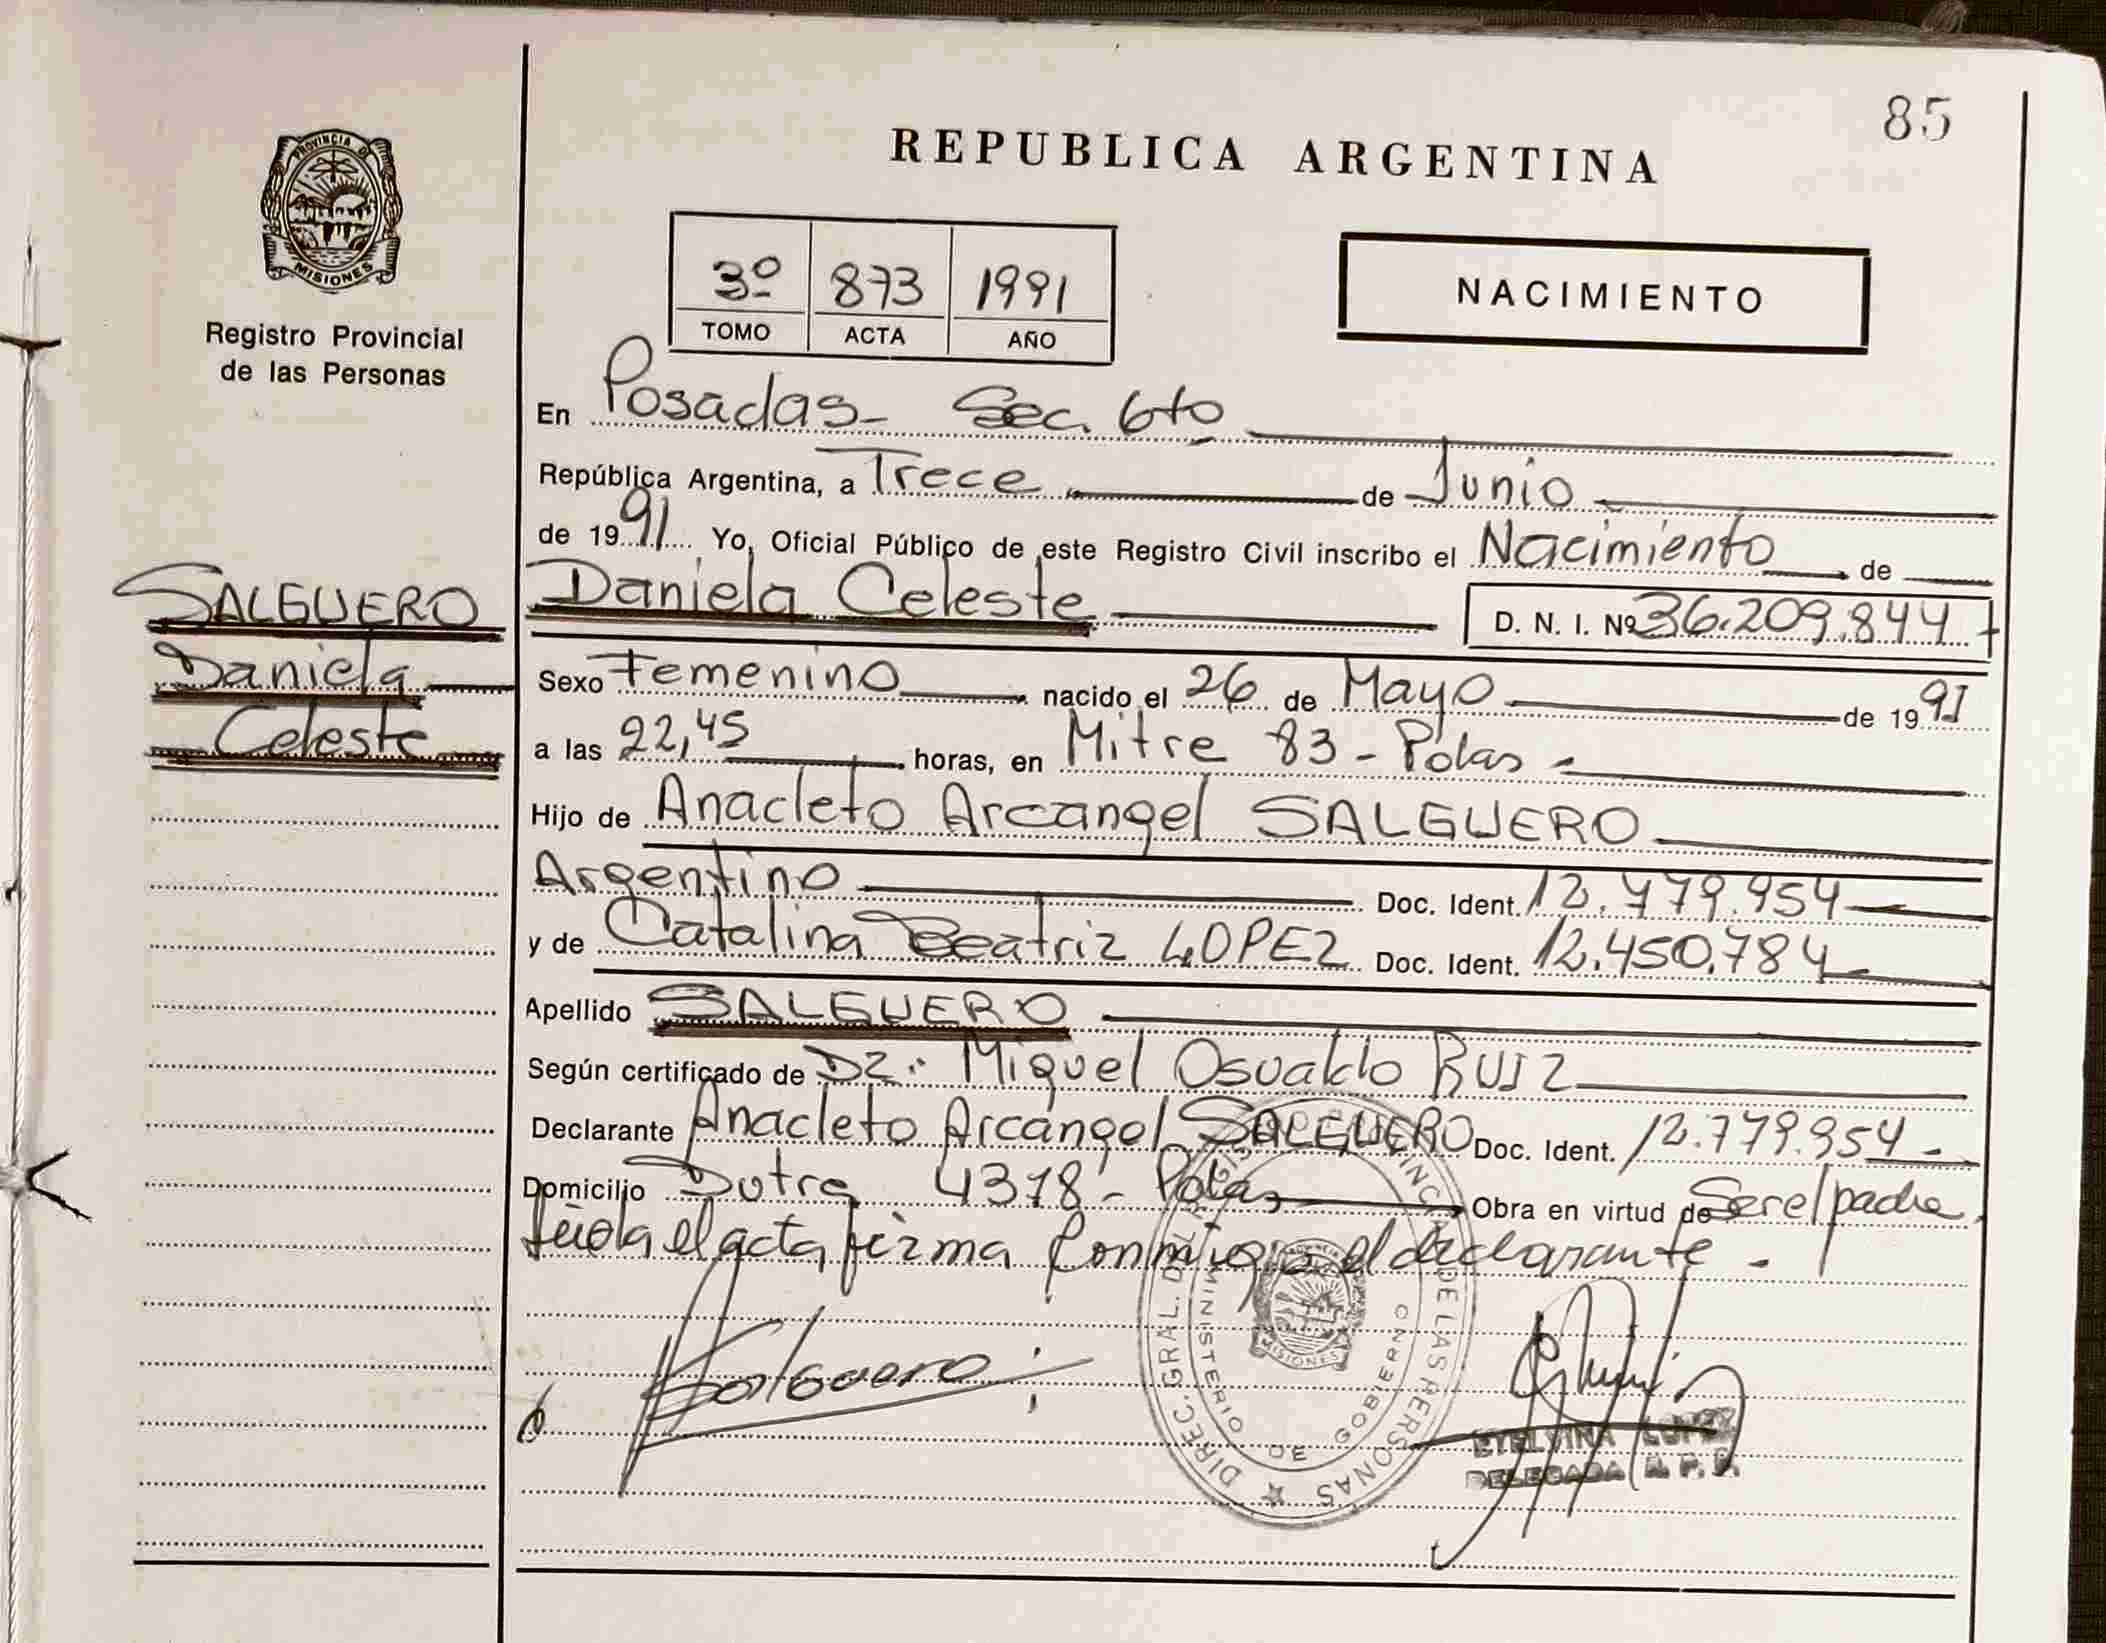 85
REPUBLICA ARGENTINA
PROVINCIA DE
MISIONES
Registro Provincial
de las Personas
3º 873 1991
TOMO ACTA AÑO
NACIMIENTO
En Posadas - Sec. 6to
República Argentina, a Trece de Junio
de 1991 Yo, Oficial Público de este Registro Civil inscribo el Nacimiento de
SALGUERO
Daniela
Celeste
Daniela Celeste D. N. I. Nº 36.209.844
Sexo Femenino nacido el 26 de Mayo de 1991
a las 22,45 horas, en Mitre 83 - Pdas -
Hijo de Anacleto Arcangel SALGUERO
Argentino Doc. Ident. 12.779.954
y de Catalina Beatriz LOPEZ Doc. Ident. 12.450.784
Apellido SALGUERO
Según certificado de Dr. Miguel Osvaldo RUIZ
Declarante Anacleto Arcángel SALGUERO Doc. Ident. 12.779.954 -
Domicilio 4318 - Pdas Obra en virtud de Ser el padre
Leida el acta firma conmigo el declarante. -
Salguero
DIREC. GRAL. DEL REGISTRO PROVINCIAL DE LAS PERSONAS
MINISTERIO DE GOBIERNO
MISIONES
LOPEZ
DELEGADA R. P. P.